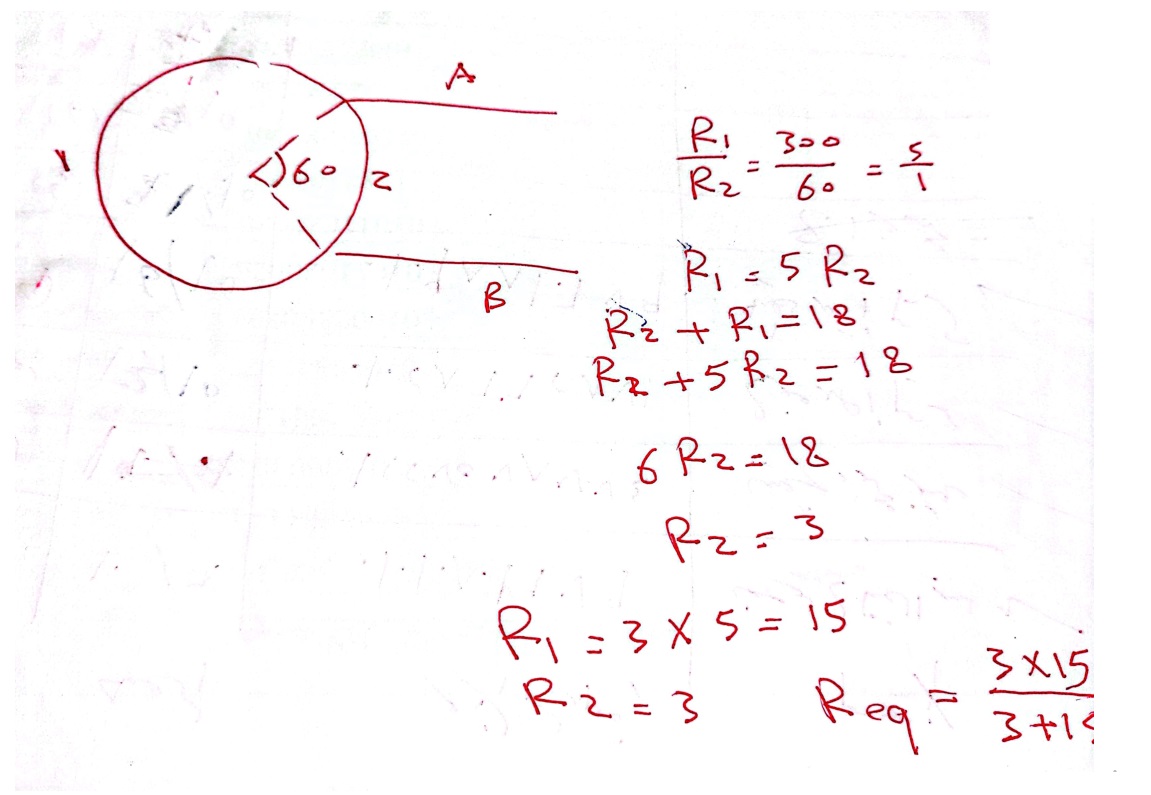 A
Y
60
Z
B
R₁/R₂ = 300/60 = 5/1
R₁ = 5 R₂
R₂ + R₁ = 18
R₂ + 5 R₂ = 18
6 R₂ = 18
R₂ = 3
R₁ = 3 × 5 = 15
R₂ = 3
Req = 3×15/3+15